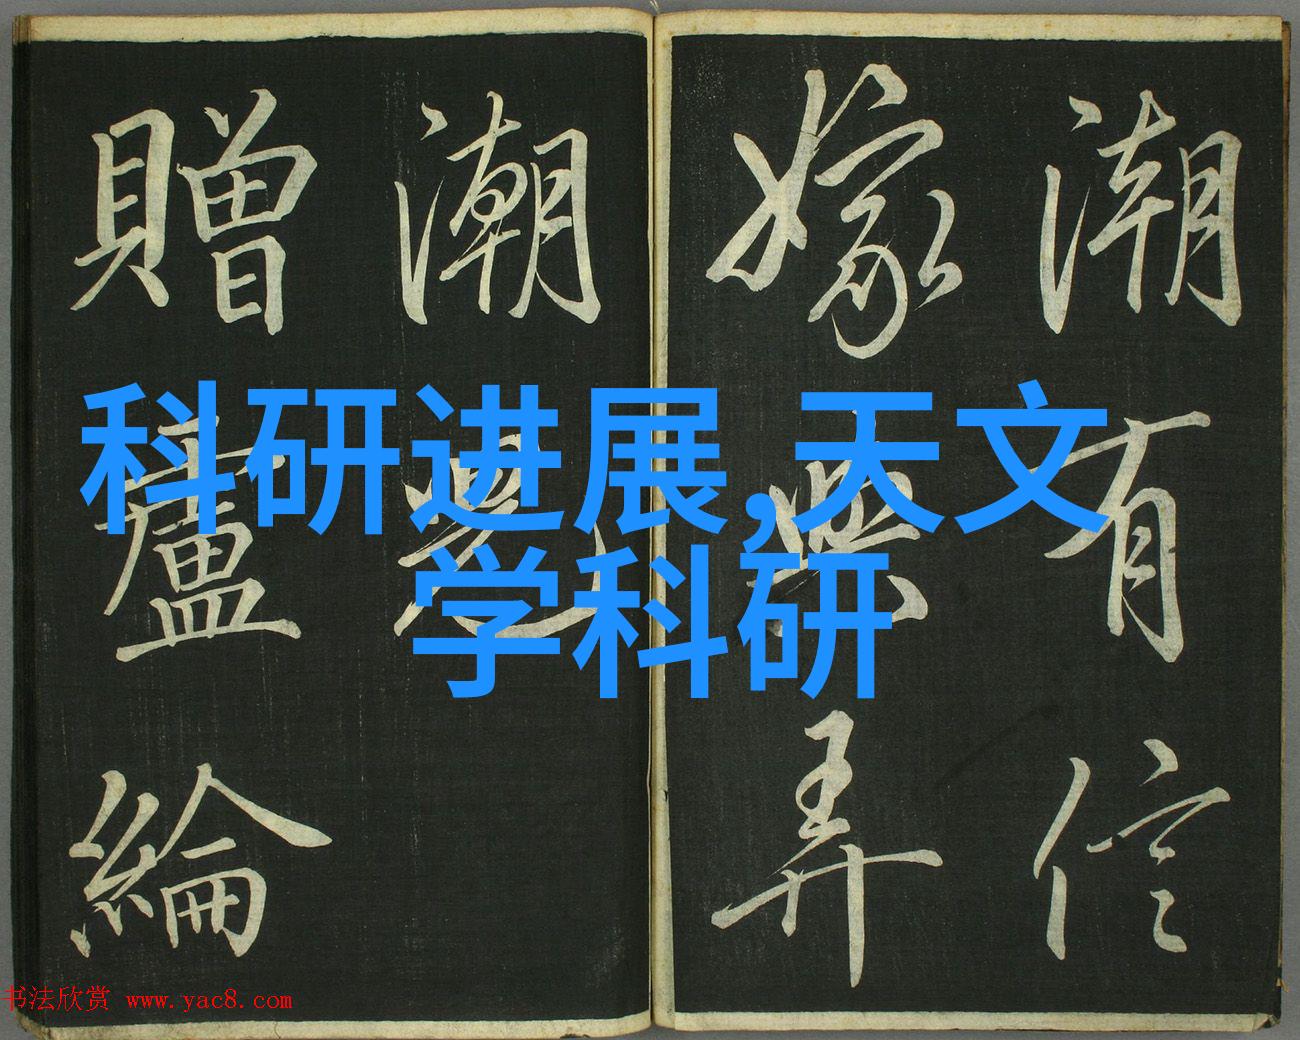 潮有信
嫁與弄
潮兒
贈盧綸
科研进展,天文
学科研
书法欣赏 www.yac8.com